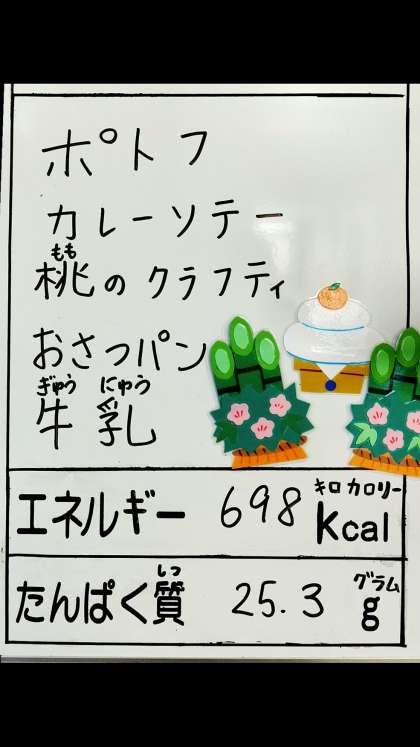 ポトフ
カレーソテー
もも
桃のクラフティ
おさつパン
ぎゅう にゅう
牛 乳
キロカロリー
エネルギー 698 Kcal
しつ グラム
たんぱく質 25.3 g